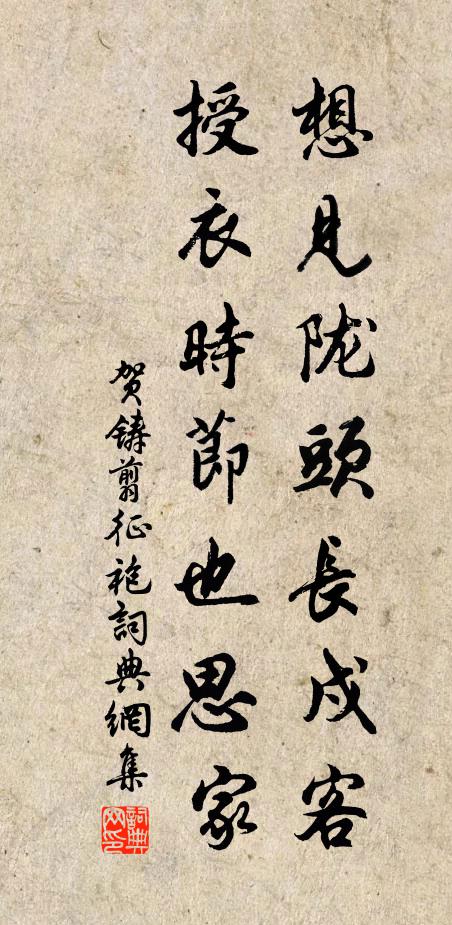 想見陇頭長戍客
授衣時節也思家
贺鑄翦征袍詞典網集
詞典网印